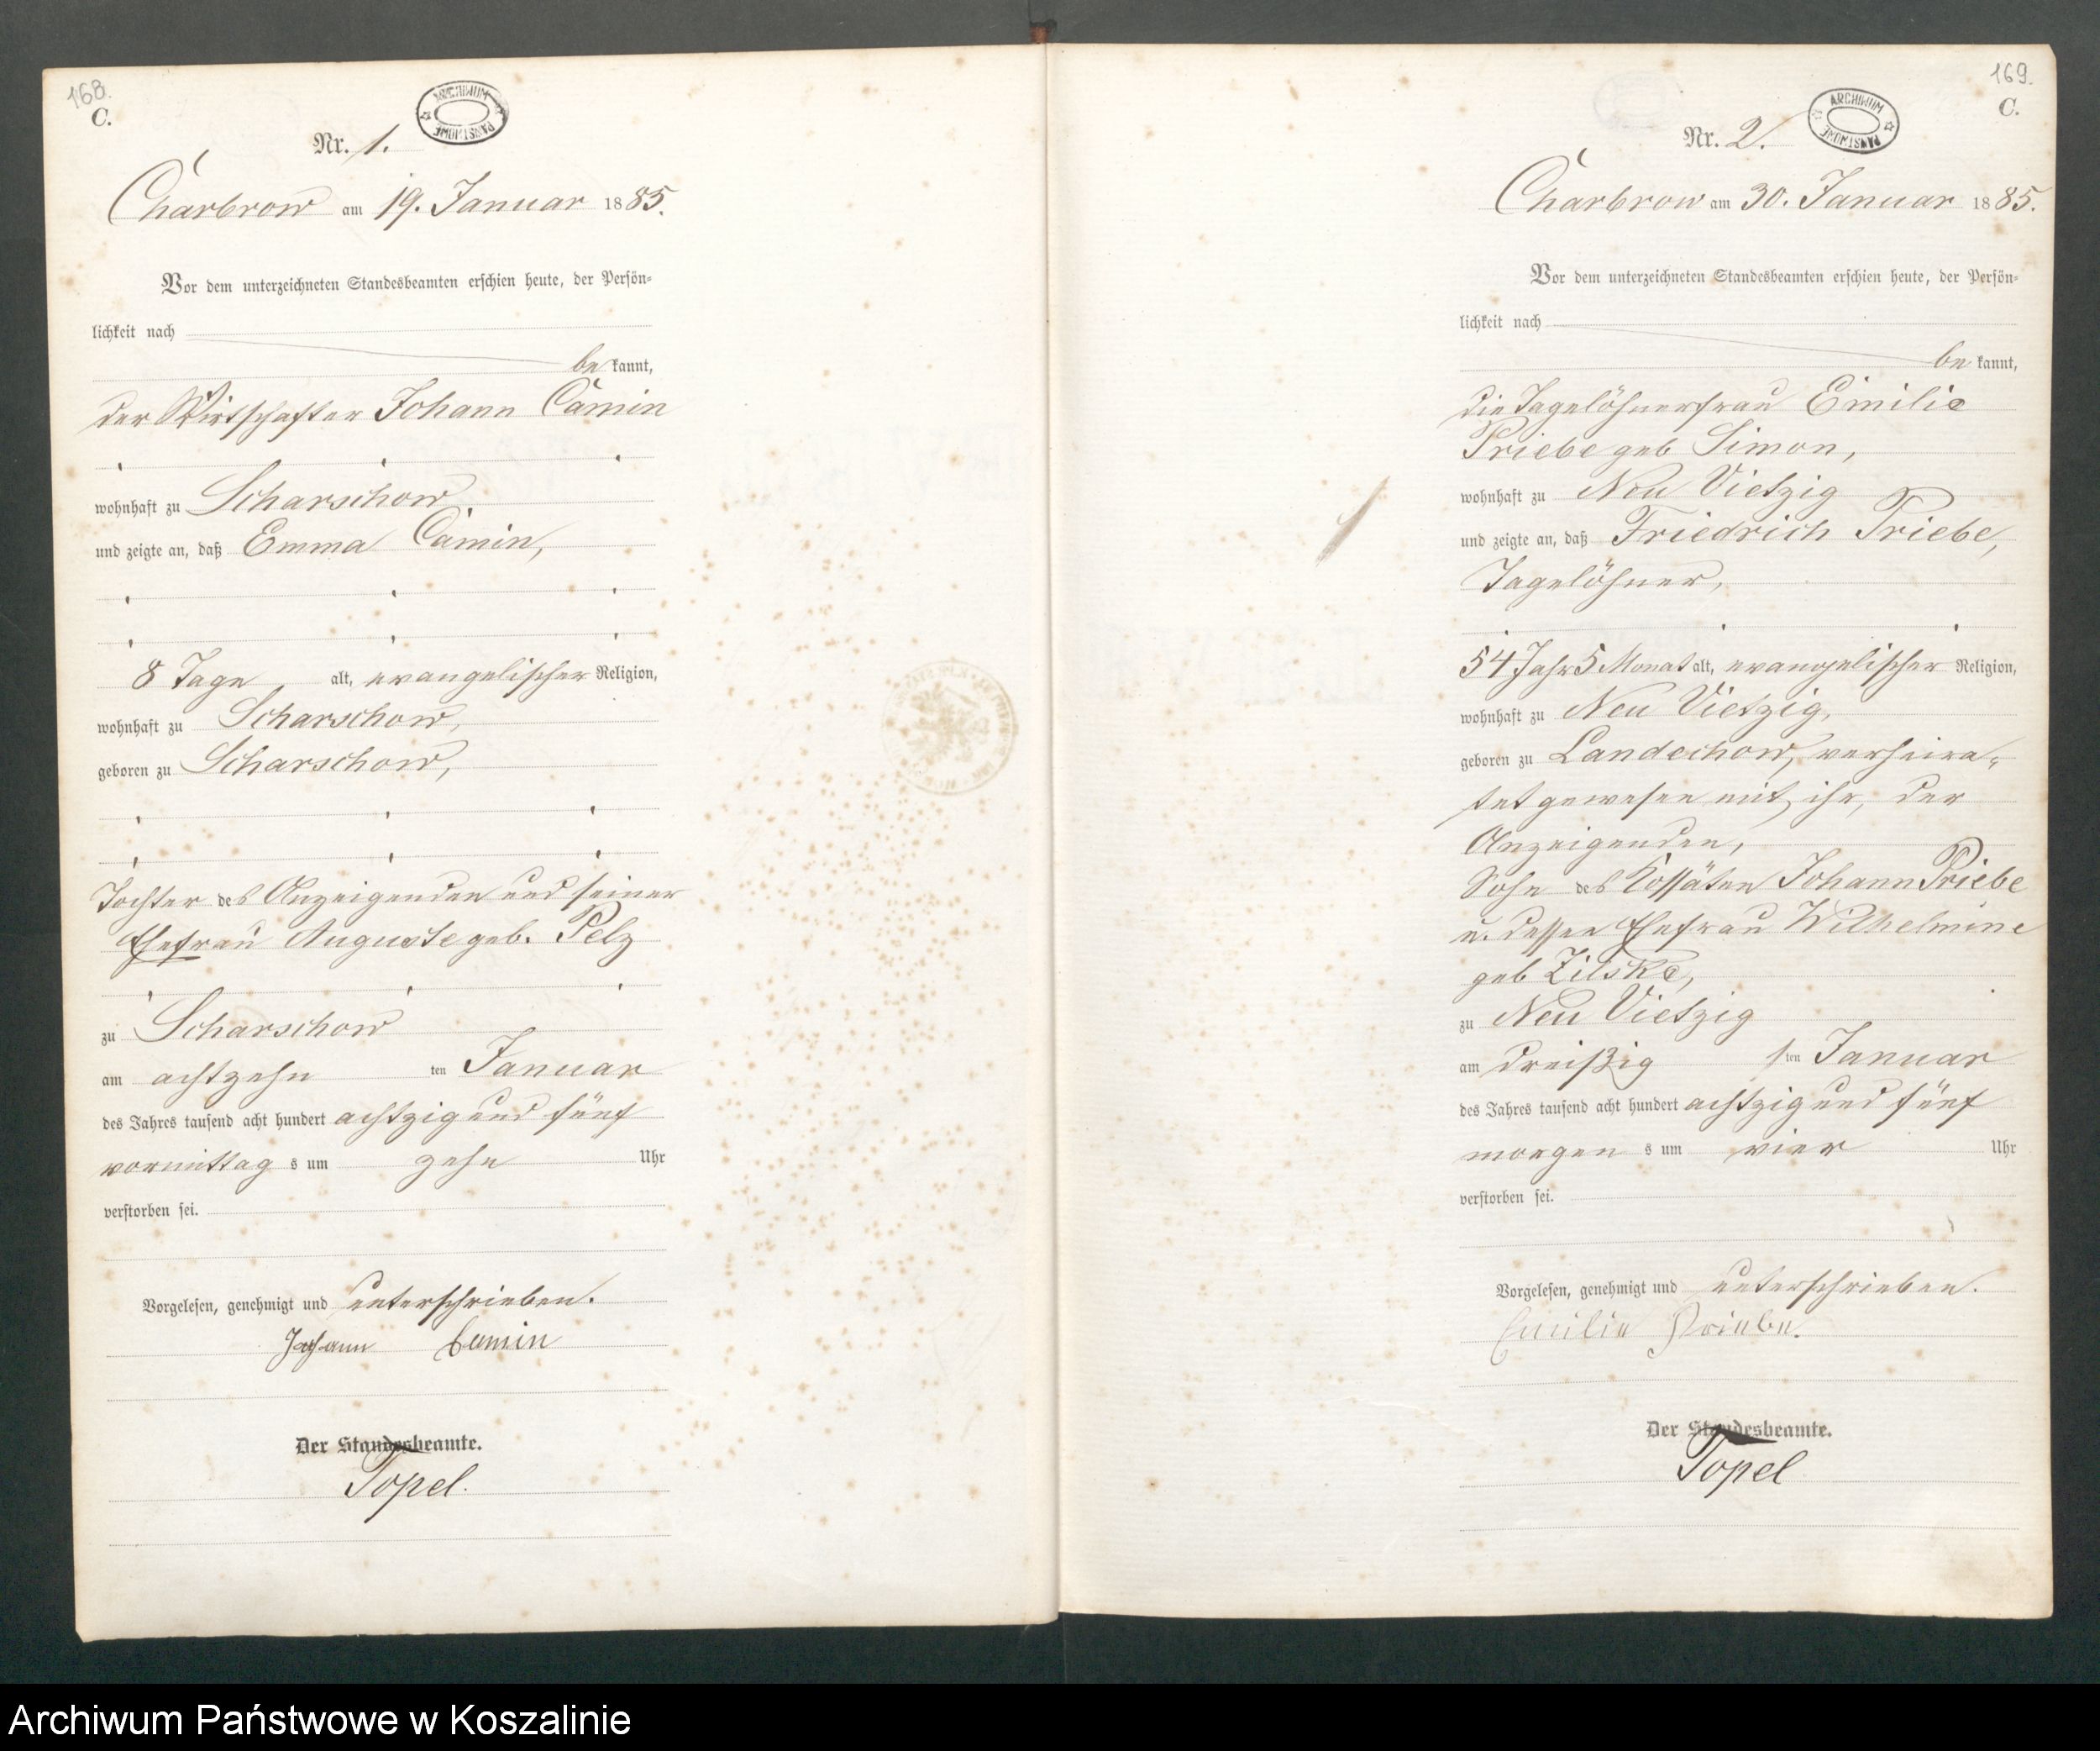 168.
C.
ARCHIWUM PAŃSTWOWE
Nr. 1.
Charbrow am 19. Januar 1885.
Vor dem unterzeichneten Standesbeamten erschien heute, der Persön-
lichkeit nach
be kannt,
der Wirtschafter Johann Camin
wohnhaft zu Scharschow
und zeigte an, daß Emma Camin,
8 Tage alt, evangelischer Religion,
wohnhaft zu Scharschow,
geboren zu Scharschow,
Tochter des Anzeigenden und seiner
Ehefrau Auguste geb. Pelz
zu Scharschow
am achtzehn ten Januar
des Jahres tausend acht hundert achtzig und fünf
vormittag s um zehn Uhr
verstorben sei.
Vorgelesen, genehmigt und unterschrieben.
Johann Camin
Der Standesbeamte.
Topel.
169.
C.
ARCHIWUM PAŃSTWOWE
Nr. 2.
Charbrow am 30. Januar 1885.
Vor dem unterzeichneten Standesbeamten erschien heute, der Persön-
lichkeit nach
be kannt,
die Tagelöhnerfrau Emilie
Priebe geb Simon,
wohnhaft zu Neu Vietzig
und zeigte an, daß Friedrich Priebe,
Tagelöhner,
54 Jahr 5 Monat alt, evangelischer Religion,
wohnhaft zu Neu Vietzig,
geboren zu Landechow, verheira-
tet gewesen mit ihr, der
Anzeigenden,
Sohn des Kossäten Johann Priebe
u. dessen Ehefrau Wilhelmine
geb Zilske,
zu Neu Vietzig
am dreißig ten Januar
des Jahres tausend acht hundert achtzig und fünf
morgen s um vier Uhr
verstorben sei.
Vorgelesen, genehmigt und unterschrieben.
Emilie Priebe.
Der Standesbeamte.
Topel
Archiwum Państwowe w Koszalinie